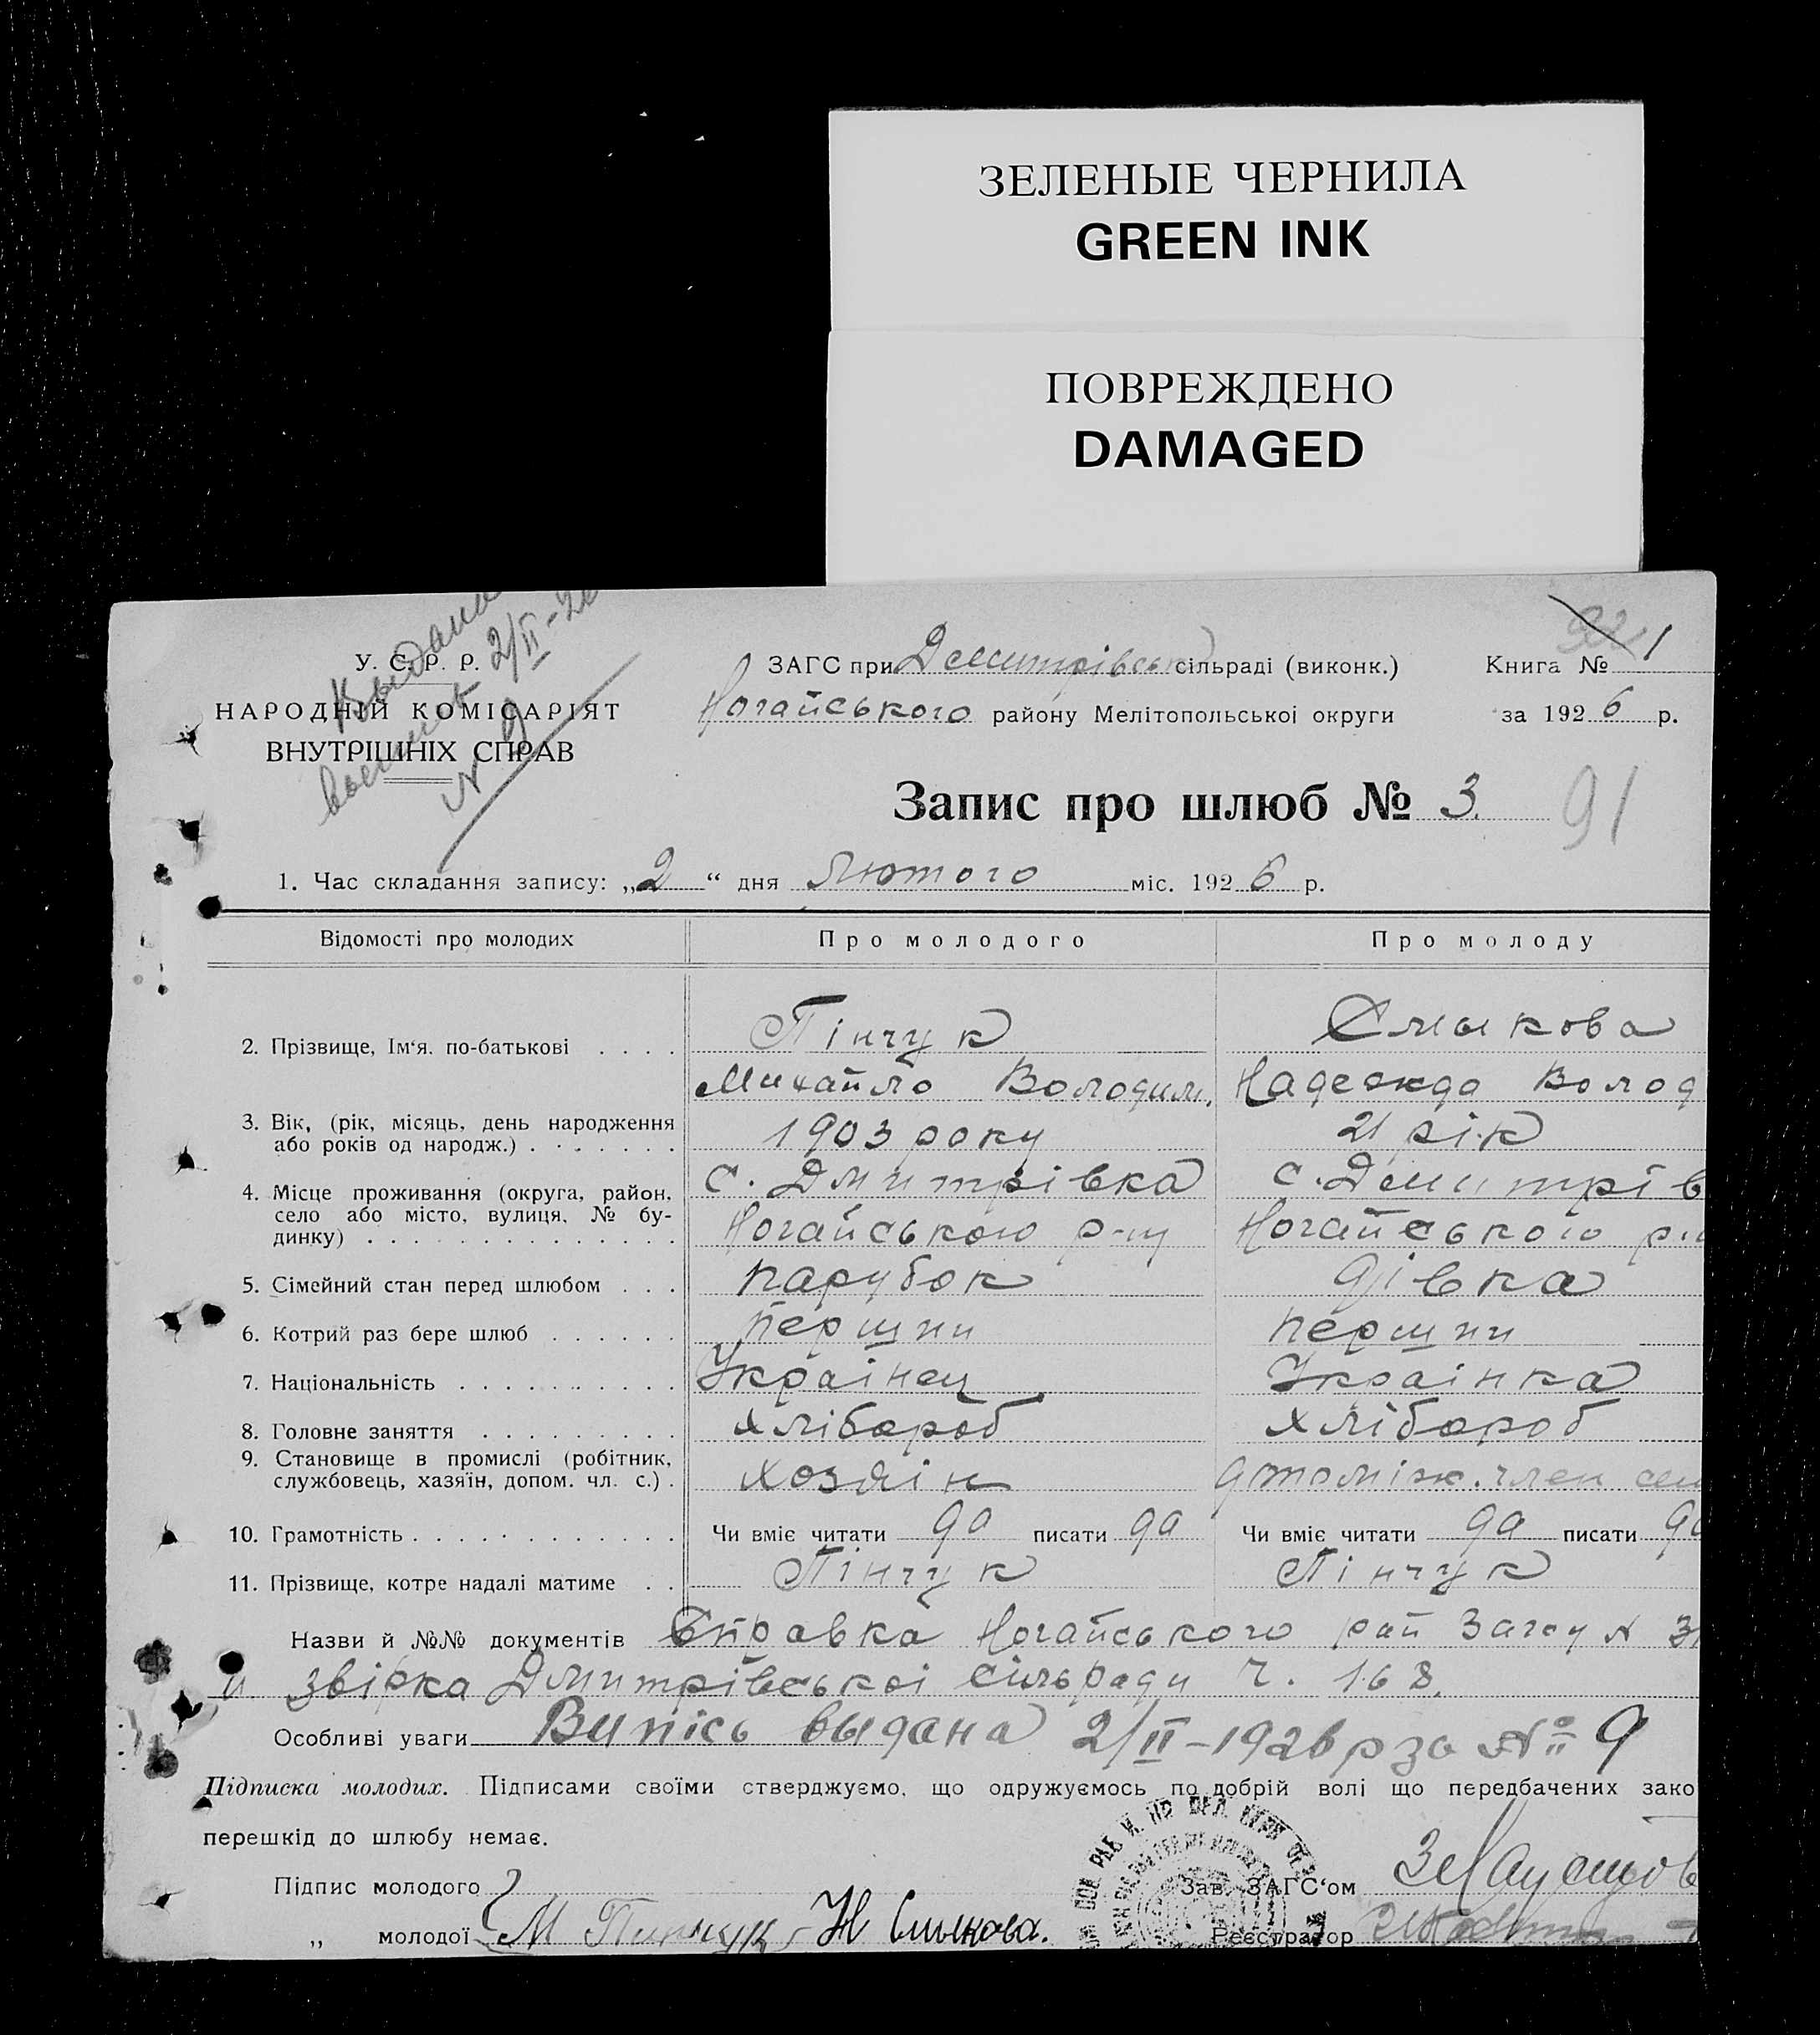 ЗЕЛЕНЫЕ ЧЕРНИЛА
GREEN INK
ПОВРЕЖДЕНО
DAMAGED
Выдана
2/II-26
№ 9
У. С. Р. Р.
НАРОДНІЙ КОМІСАРІЯТ
ВНУТРІШНІХ СПРАВ
ЗАГС при Дмитрівськ сільраді (виконк.) Книга № 1
Ногайського району Мелітопольської округи за 1926 р.
Запис про шлюб № 3. 91
1. Час складання запису: „2“ дня Лютого міс. 1926 р.
Відомості про молодих Про молодого Про молоду
2. Прізвище, Ім'я, по-батькові . . . . Пінчук Смыкова
Михайло Володим. Надежда Волод
3. Вік, (рік, місяць, день народження
або років од народж.) . . . . . . . 1903 року 21 рік
4. Місце проживання (округа, район, с. Дмитрівка с. Дмитрів
село або місто, вулиця, № бу-
динку) . . . . . . . . . . . . . . Ногайського р-ну Ногайського р-н
5. Сімейний стан перед шлюбом . . . парубок дівка
6. Котрий раз бере шлюб . . . . . . перший перший
7. Національність . . . . . . . . . . Украінец Украінка
8. Головне заняття . . . . . . . . . хлібороб хлібороб
9. Становище в промислі (робітник,
службовець, хазяїн, допом. чл. с.) . хозяін допоміж. член сем
10. Грамотність . . . . . . . . . . . . Чи вміє читати да писати да Чи вміє читати да писати да
11. Прізвище, котре надалі матиме . . Пінчук Пінчук
Назви й №№ документів Справка Ногайського рай Загсу №
и звірка Дмитрівськоі сільради ч. 168.
Особливі уваги Випісь выдана 2/II-1926 р за № 9
Підписка молодих. Підписами своїми стверджуємо, що одружуємось по добрій волі що передбачених зако
перешкід до шлюбу немає.
Підпис молодого Зав. ЗАГС'ом
„ молодої М Пинчук Н Смыкова. Реєстратор